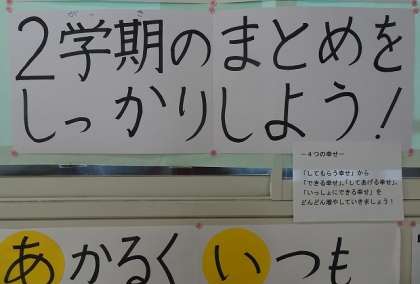 2学期のまとめを
しっかりしよう!
－4つの幸せ－
「してもらう幸せ」から
「できる幸せ」、「してあげる幸せ」、
「いっしょにできる幸せ」を
どんどん増やしていきましょう!
あかるく いつも